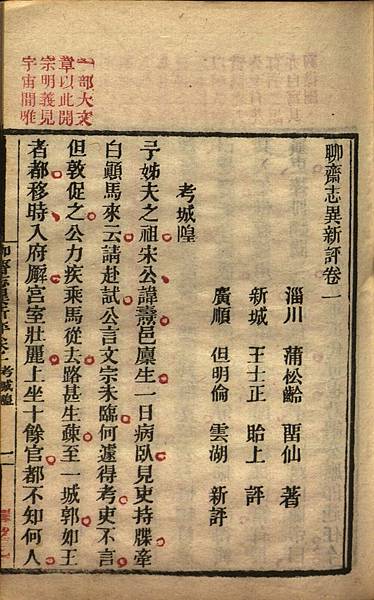 聊齋志異新評卷一
淄川 蒲松齡 畱仙 著
新城 王士正 貽上 評
廣順 但明倫 雲湖 新評
考城隍
予姊夫之祖宋公諱燾邑廩生一日病臥見吏持牒牽
白顚馬來云請赴試公言文宗未臨何遽得考吏不言
但敦促之公力疾乘馬從去路甚生疎至一城郭如王
者都移時入府廨宮室壯麗上坐十餘官都不知何人
一部大文
章以此開
宗明義見
宇宙間唯
考城隍
一